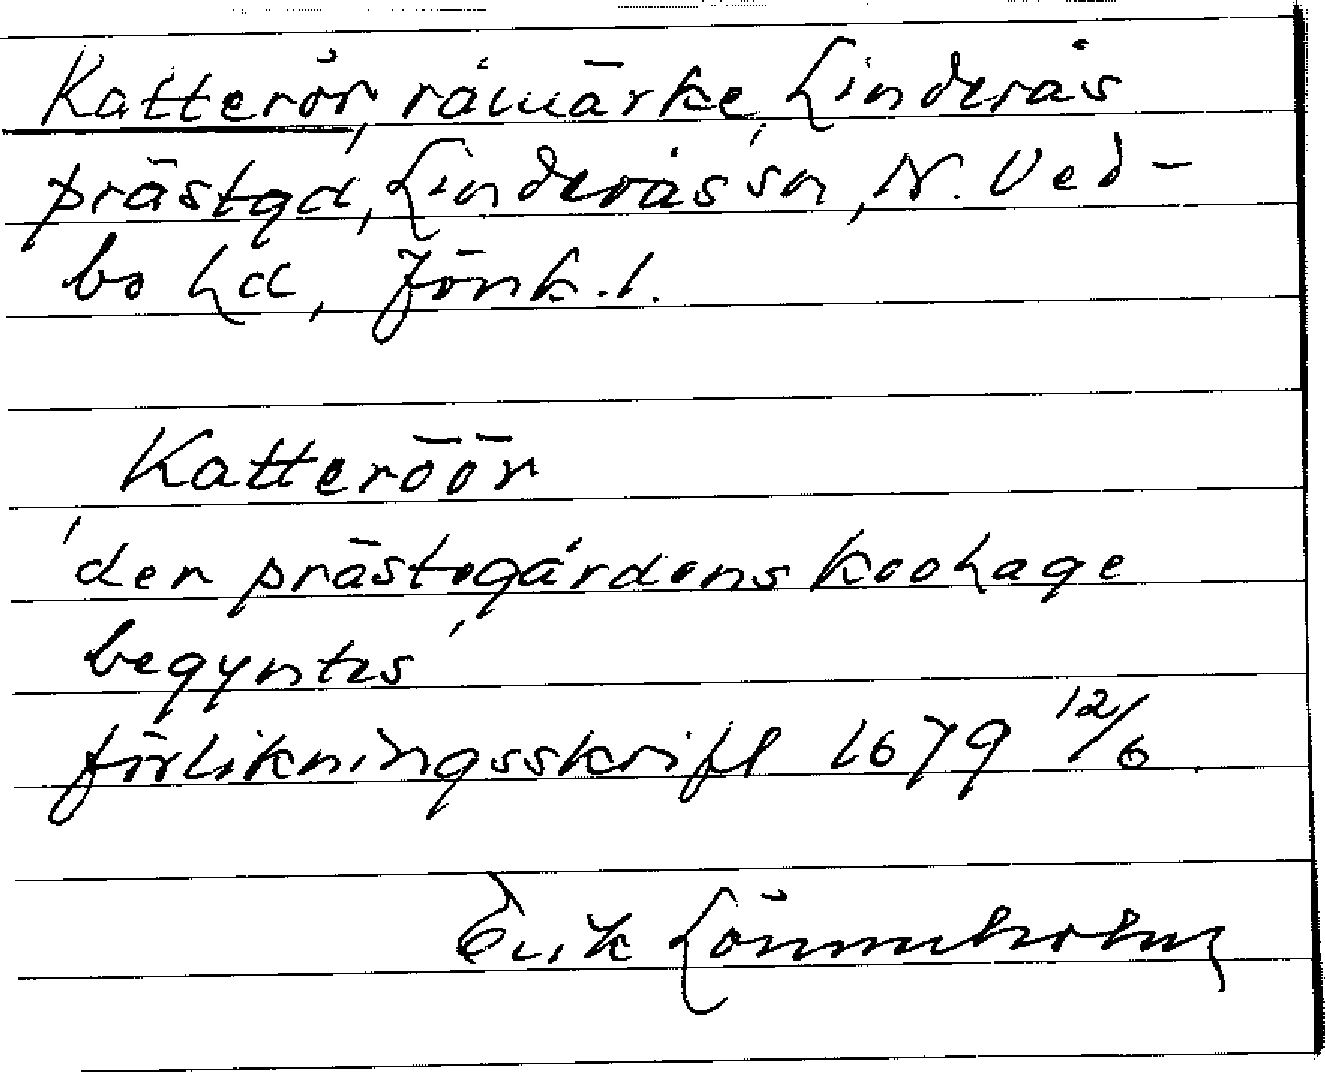 Katterör, råmärke, Linderås
prästgd, Linderås sn, N. Ved-
bo hd, Jönk. l.
Katteröör
'der prästegårdens koohage
begyntes'
förlikningsskrift 1679 12/6
Erik Lönnerholm